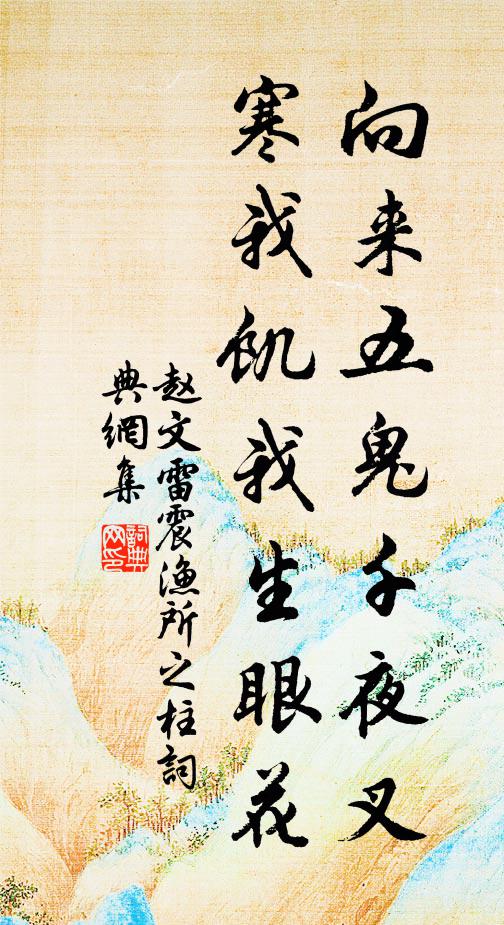 向来五鬼千夜叉
寒我飢我生眼花
赵文雷震漁所之柱詞
典網集
詞典网印